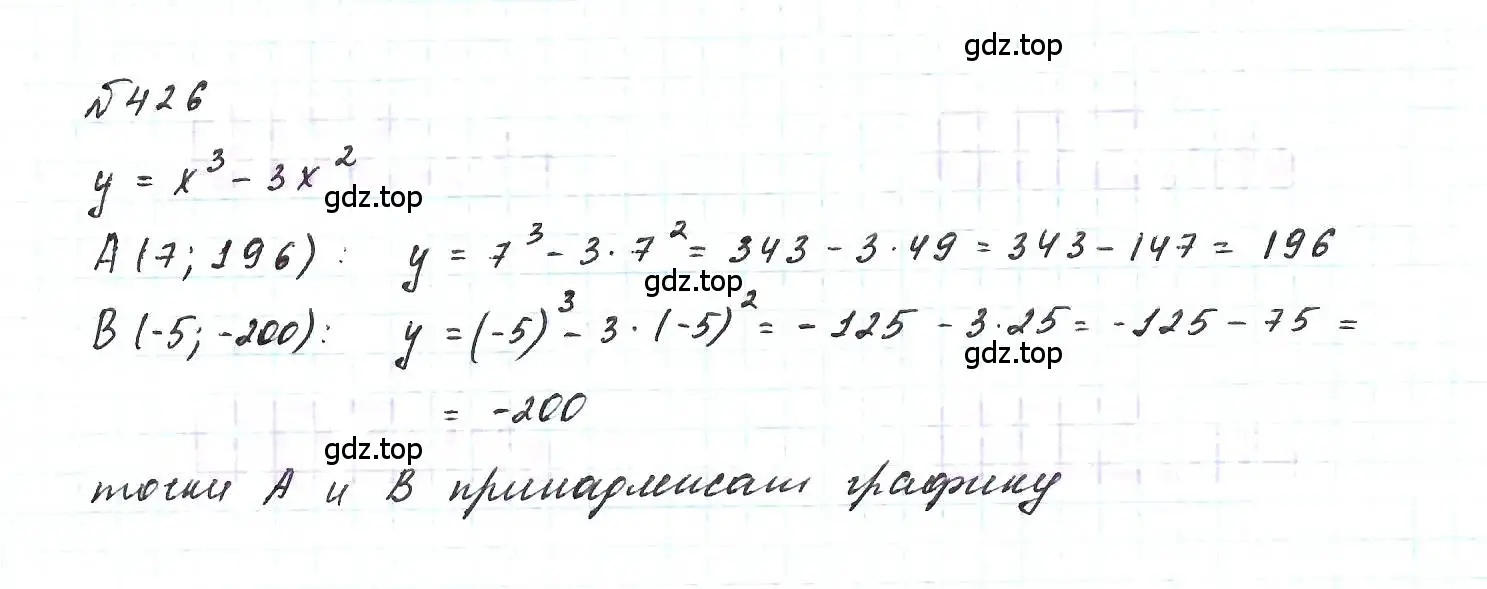 gdz.top
№426
y = x³ - 3x²
gdz.top
A(7; 196): y = 7³ - 3·7² = 343 - 3·49 = 343 - 147 = 196
gdz.top
B(-5; -200): y = (-5)³ - 3·(-5)² = -125 - 3·25 = -125 - 75 =
gdz.top
= -200
gdz.top
точки A и B принадлежат графику